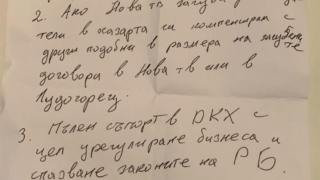 2. Ако Нова тв загуби
тели в хазарта ги компенсирам с
други подобни в размера на загубените
договора в Нова тв или в
Лудогорец.
3. Пълен съпорт в ДКХ с
цел урегулиране бизнеса и
спазване законите на РБ.